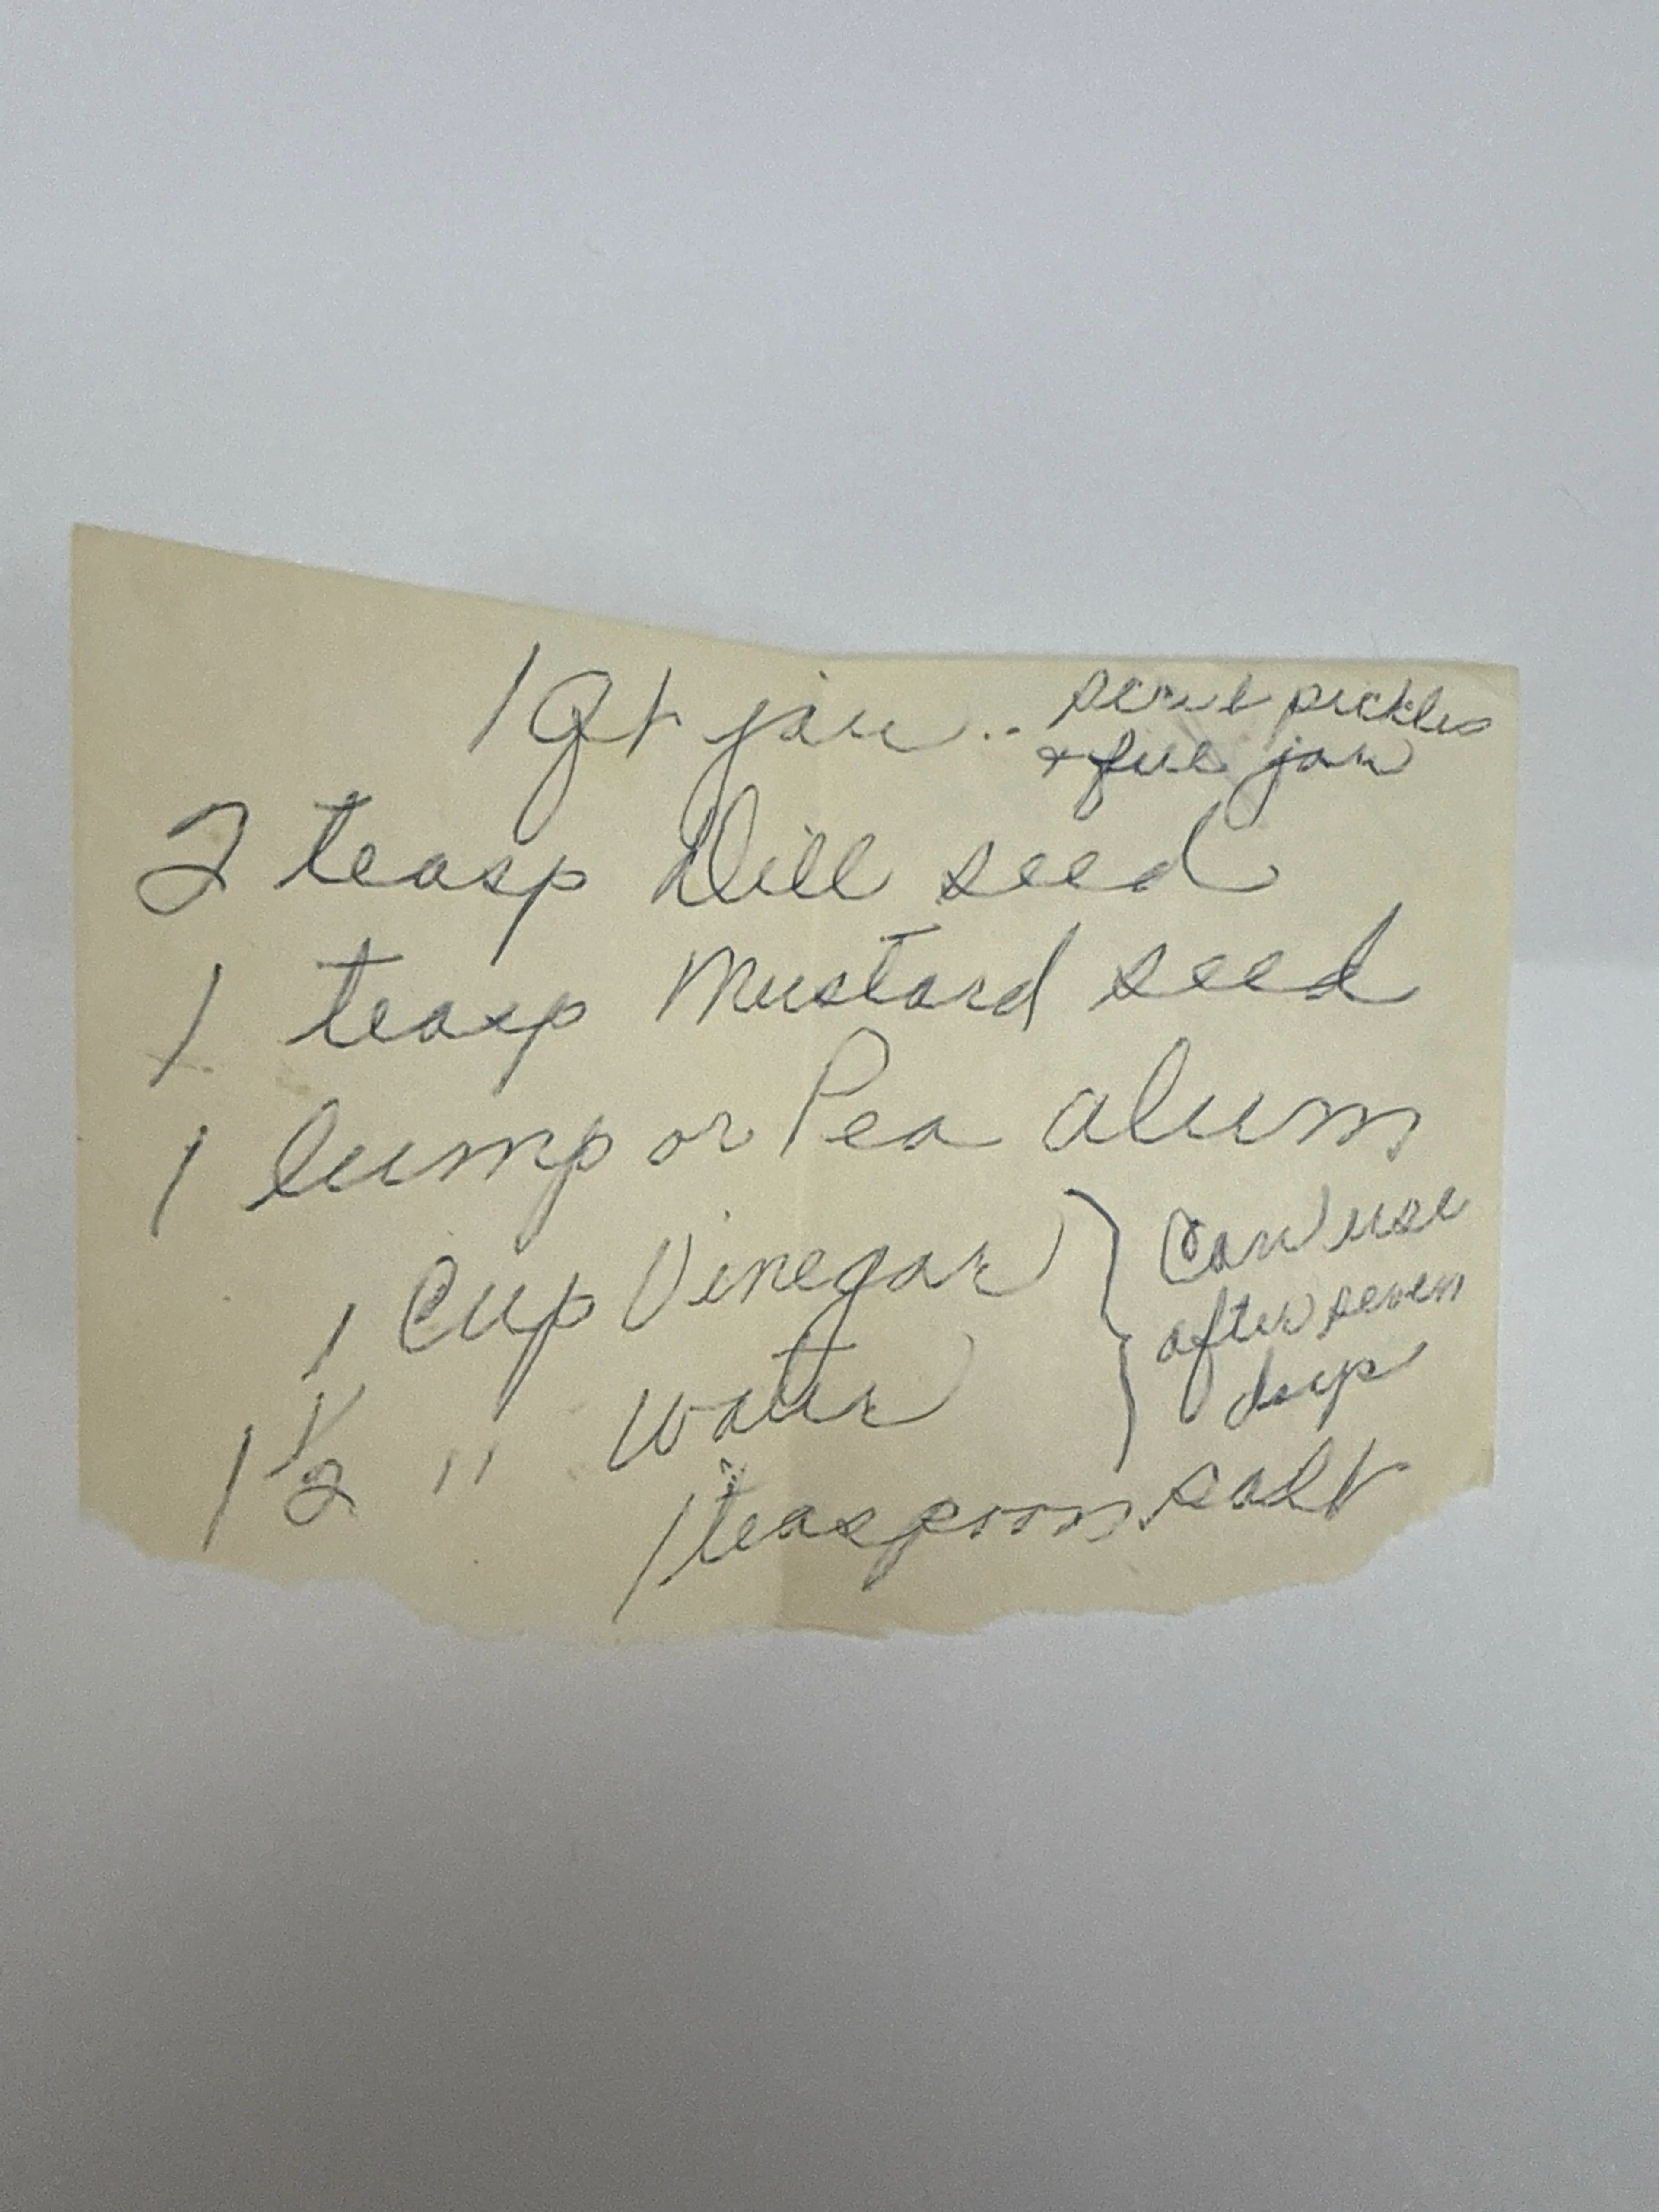 1 Qt jar .. pickles
+ fill jar
2 teasp Dill seed
1 teasp Mustard seed
1 lump or Pea alum
1 Cup Vinegar
1 1/2 " water
Can use
after seven
days
1 teaspoon salt